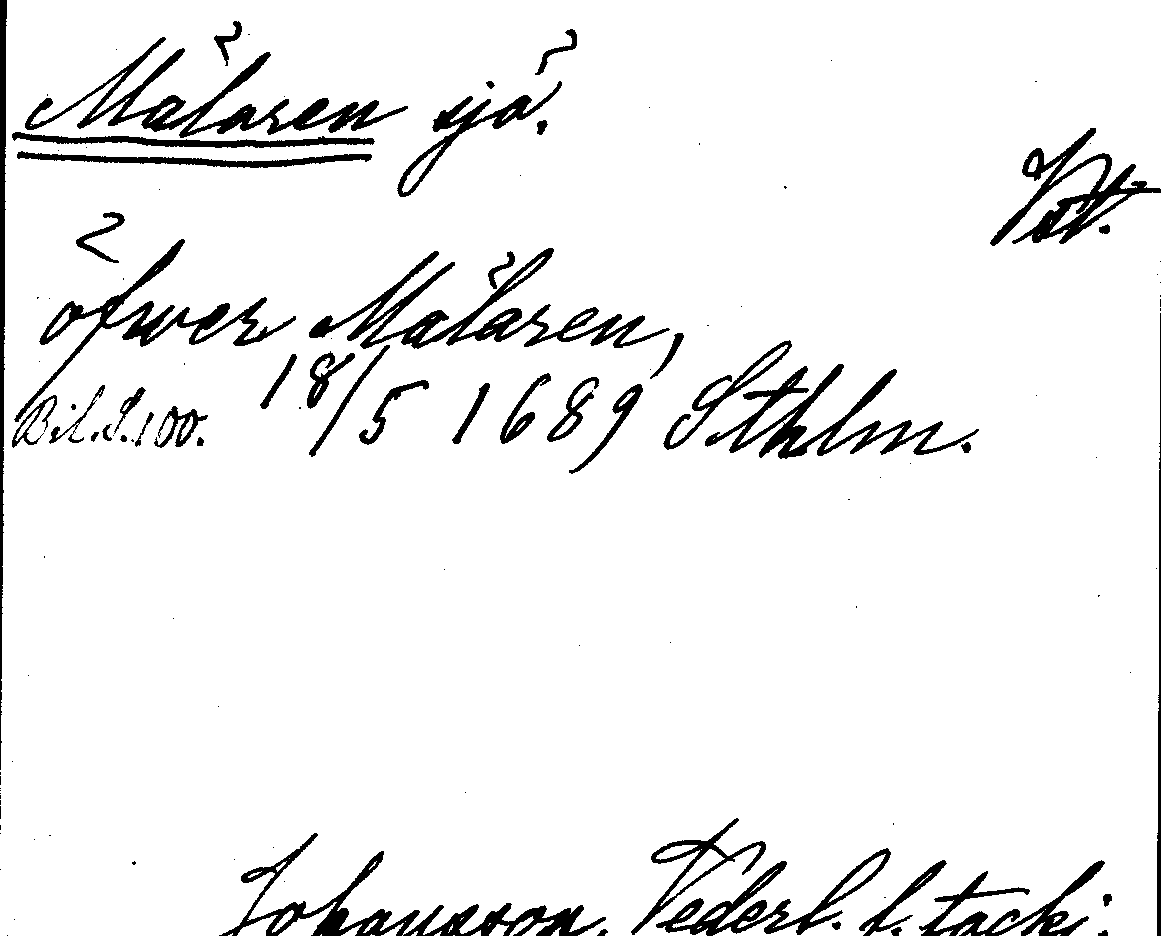 Mälaren sjö.
Vstm.
öfwer Mälaren,
Bil. S. 100. 18/5 1689 Sthlm.
Johansson, Vederl. f. tackj.